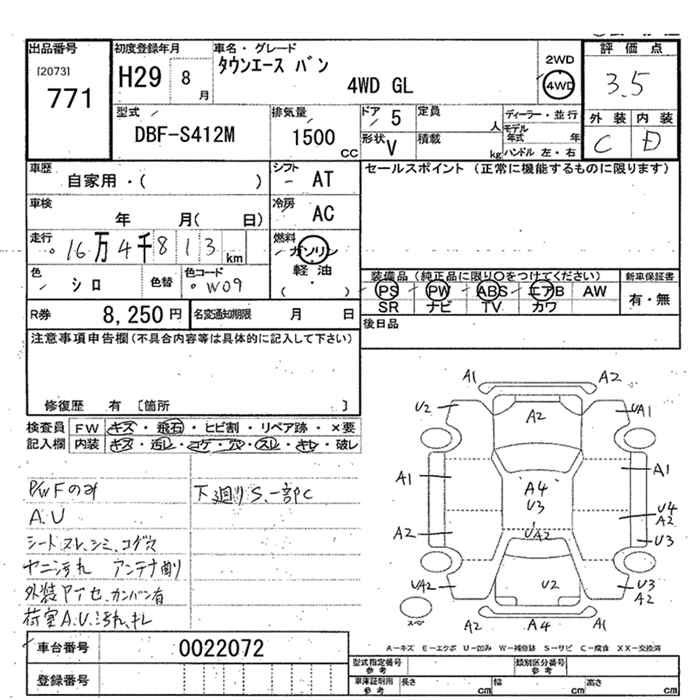 出品番号
[2073]
771
初度登録年月
H29 8 月
車名・グレード
タウンエース バン
4WD GL
2WD
4WD
評価点
3.5
外装 内装
C D
型式
DBF-S412M
排気量
1500 cc
ドア 5
定員 人
形状 V
積載 kg
ディーラー・並行
モデル年式 年
ハンドル 左・右
車歴
自家用・( )
シフト
AT
セールスポイント (正常に機能するものに限ります)
車検
年 月( 日)
冷房
AC
走行
16万4千813 km
燃料
ガソリン
軽油
( ・ )
色
シロ
色替
色コード
W09
装備品 (純正品に限り○をつけてください)
新車保証書
PS PW ABS エアB AW
SR ナビ TV カワ
有・無
R券 8,250円
名変通知期限 月 日
後日品
注意事項申告欄(不具合内容等は具体的に記入して下さい)
修復歴 有 〔箇所 〕
検査員 FW キズ・飛石・ヒビ割・リペア跡・×要
記入欄 内装 キズ・汚レ・コゲ・穴・スレ・キレ・破レ
P/WFのみ
A.U
シートスレ、シミ、コゲ穴
ヤニ汚れ アンテナ曲り
外装アセ、カンバン有
荷室A.U、汚れ、キレ
下廻りS.一部C
A1 A2
U2 A2 UA1
A1 A4 A1
U3
U4
A2
A2 UA2 U3
UA2 U2 U3
A2
スペ
A2 A4 A1
A-キズ E-エクボ U-凹み W-補修跡 S-サビ C-腐食 XX-交換済
車台番号 0022072
登録番号
型式指定番号
参考
類別区分番号
参考
車庫証明用
参考
長さ cm 幅 cm 高さ cm